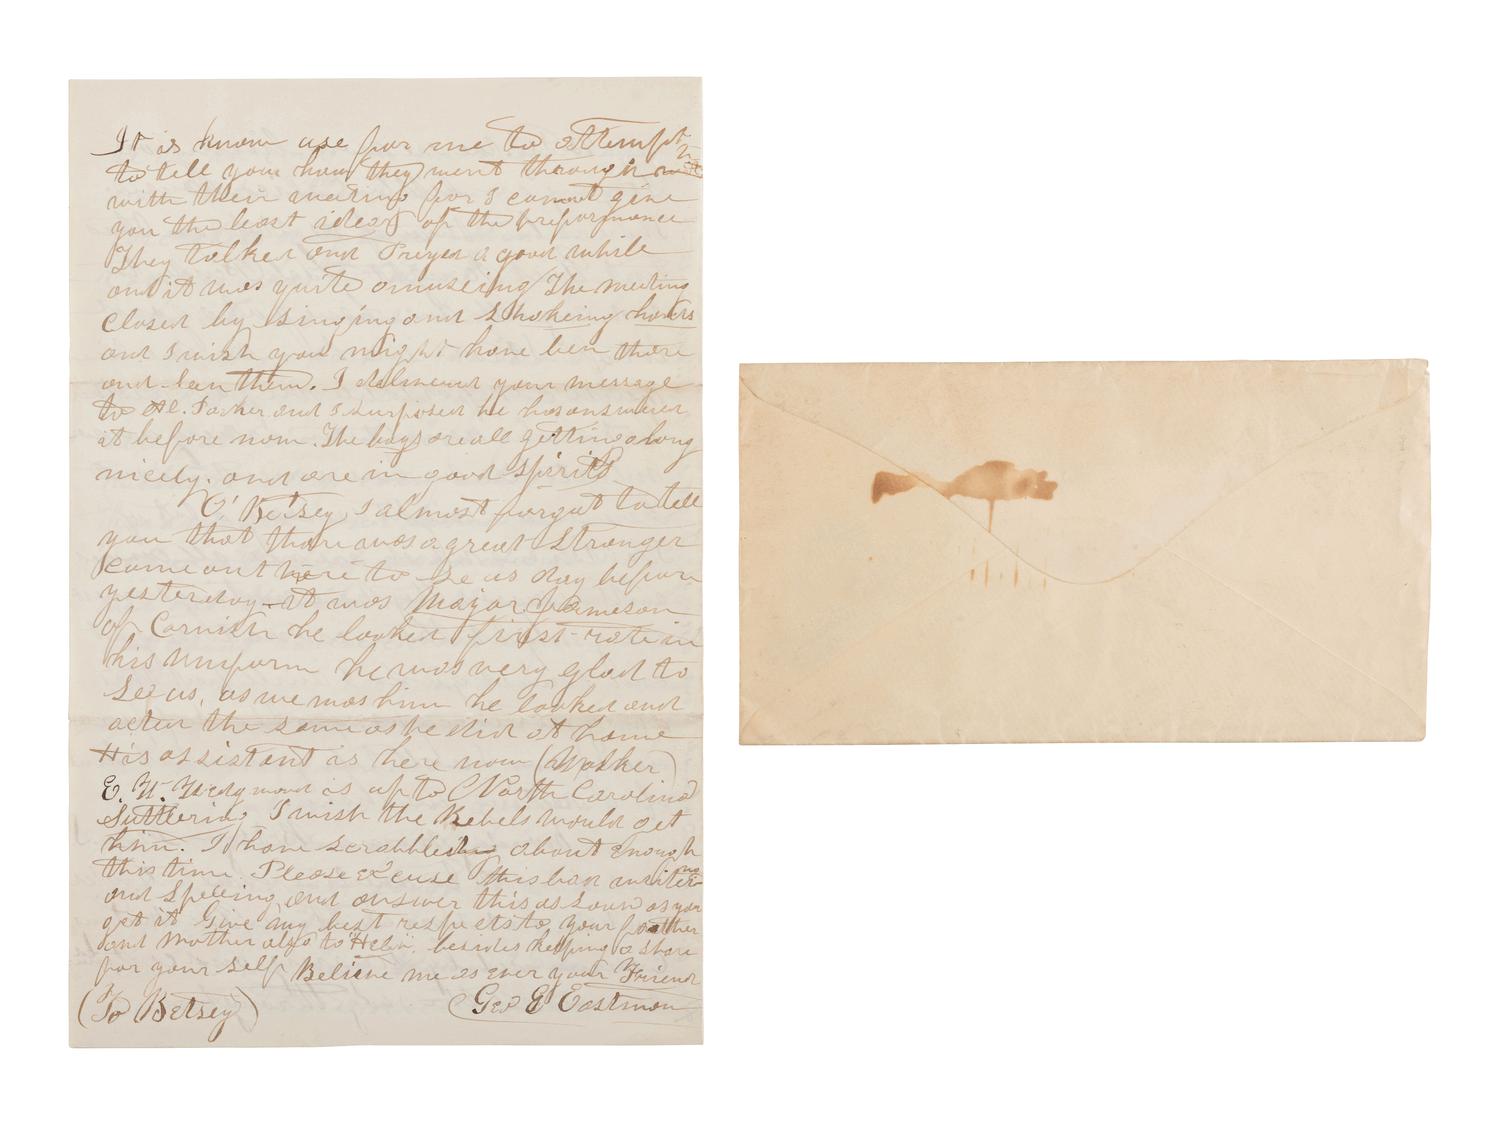 It is know use for me to attempt
to tell you how they went through
with their meeting for I cannot give
you the least idea of the preformance
They talked and Prayed a good while
and it was quite amuseing The meeting
closed by singing and Shakeing hands
and I wish you might have ben there
and seen them. I delivered your message
to Al. Parker and I surposed he has answered
it before now. The boys are all getting along
nicely. and are in good spirits
O' Betsey I almost forgot to tell
you that there was a great Stranger
come out here to see us day before
yesterday it was Major Jameson
of Cornish he looked first-rate in
his uniform he was very glad to
see us, as we was him he looked and
acted the same as he did at home
His assistant is here now (Walker)
E. W. is up to North Carolina
Suttlering I wish the Rebels would get
him. I have scrabbled about enough
this time. Please excuse this bad writeing
and Spelling and answer this as soon as you
get it Give my best respects to your farther
and Mother also to "Helen", besides keeping a share
for your self Believe me as ever your Friend
(To Betsey) Geo E Eastman